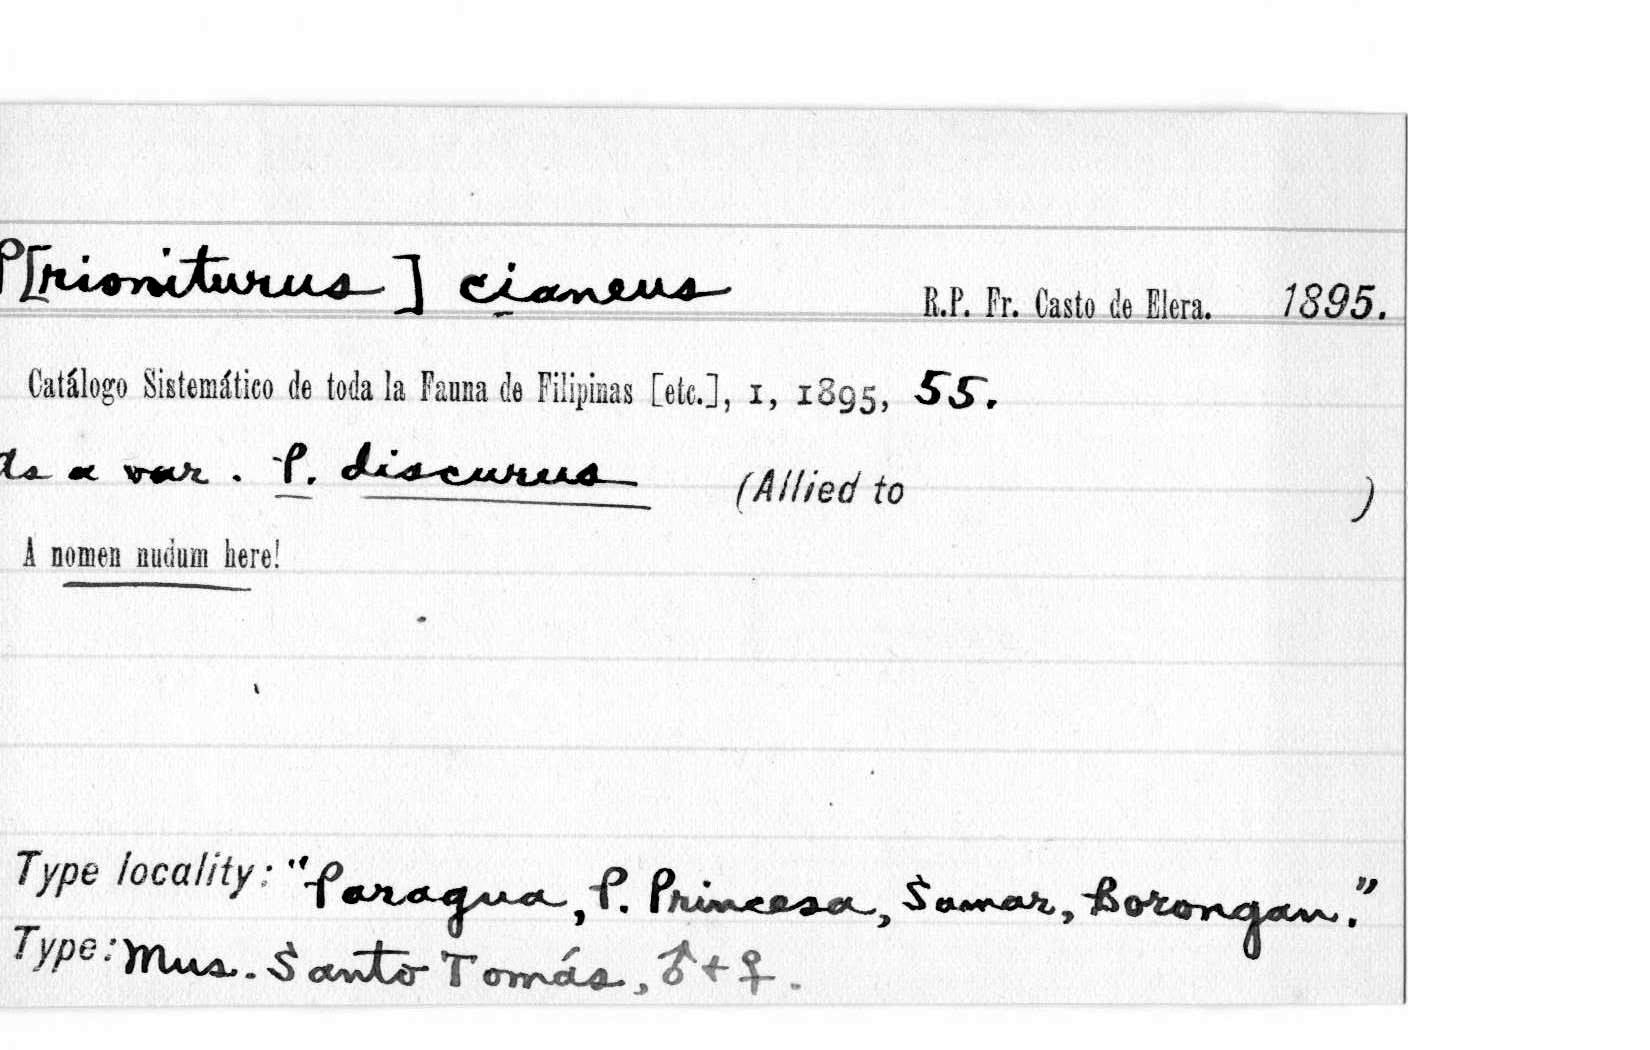 P[rioniturus] cianeus R.P. Fr. Casto de Elera. 1895.
Catálogo Sistemático de toda la Fauna de Filipinas [etc.], 1, 1895, 55.
As a var. P. discurus (Allied to )
A nomen nudum here!
Type locality: "Paragua, P. Princesa, Samar, Borongan."
Type: Mus. Santo Tomás, ♂ + ♀.